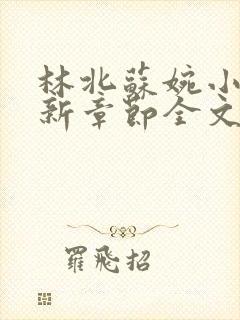 林北蘇婉小
新章節全文
羅飛招